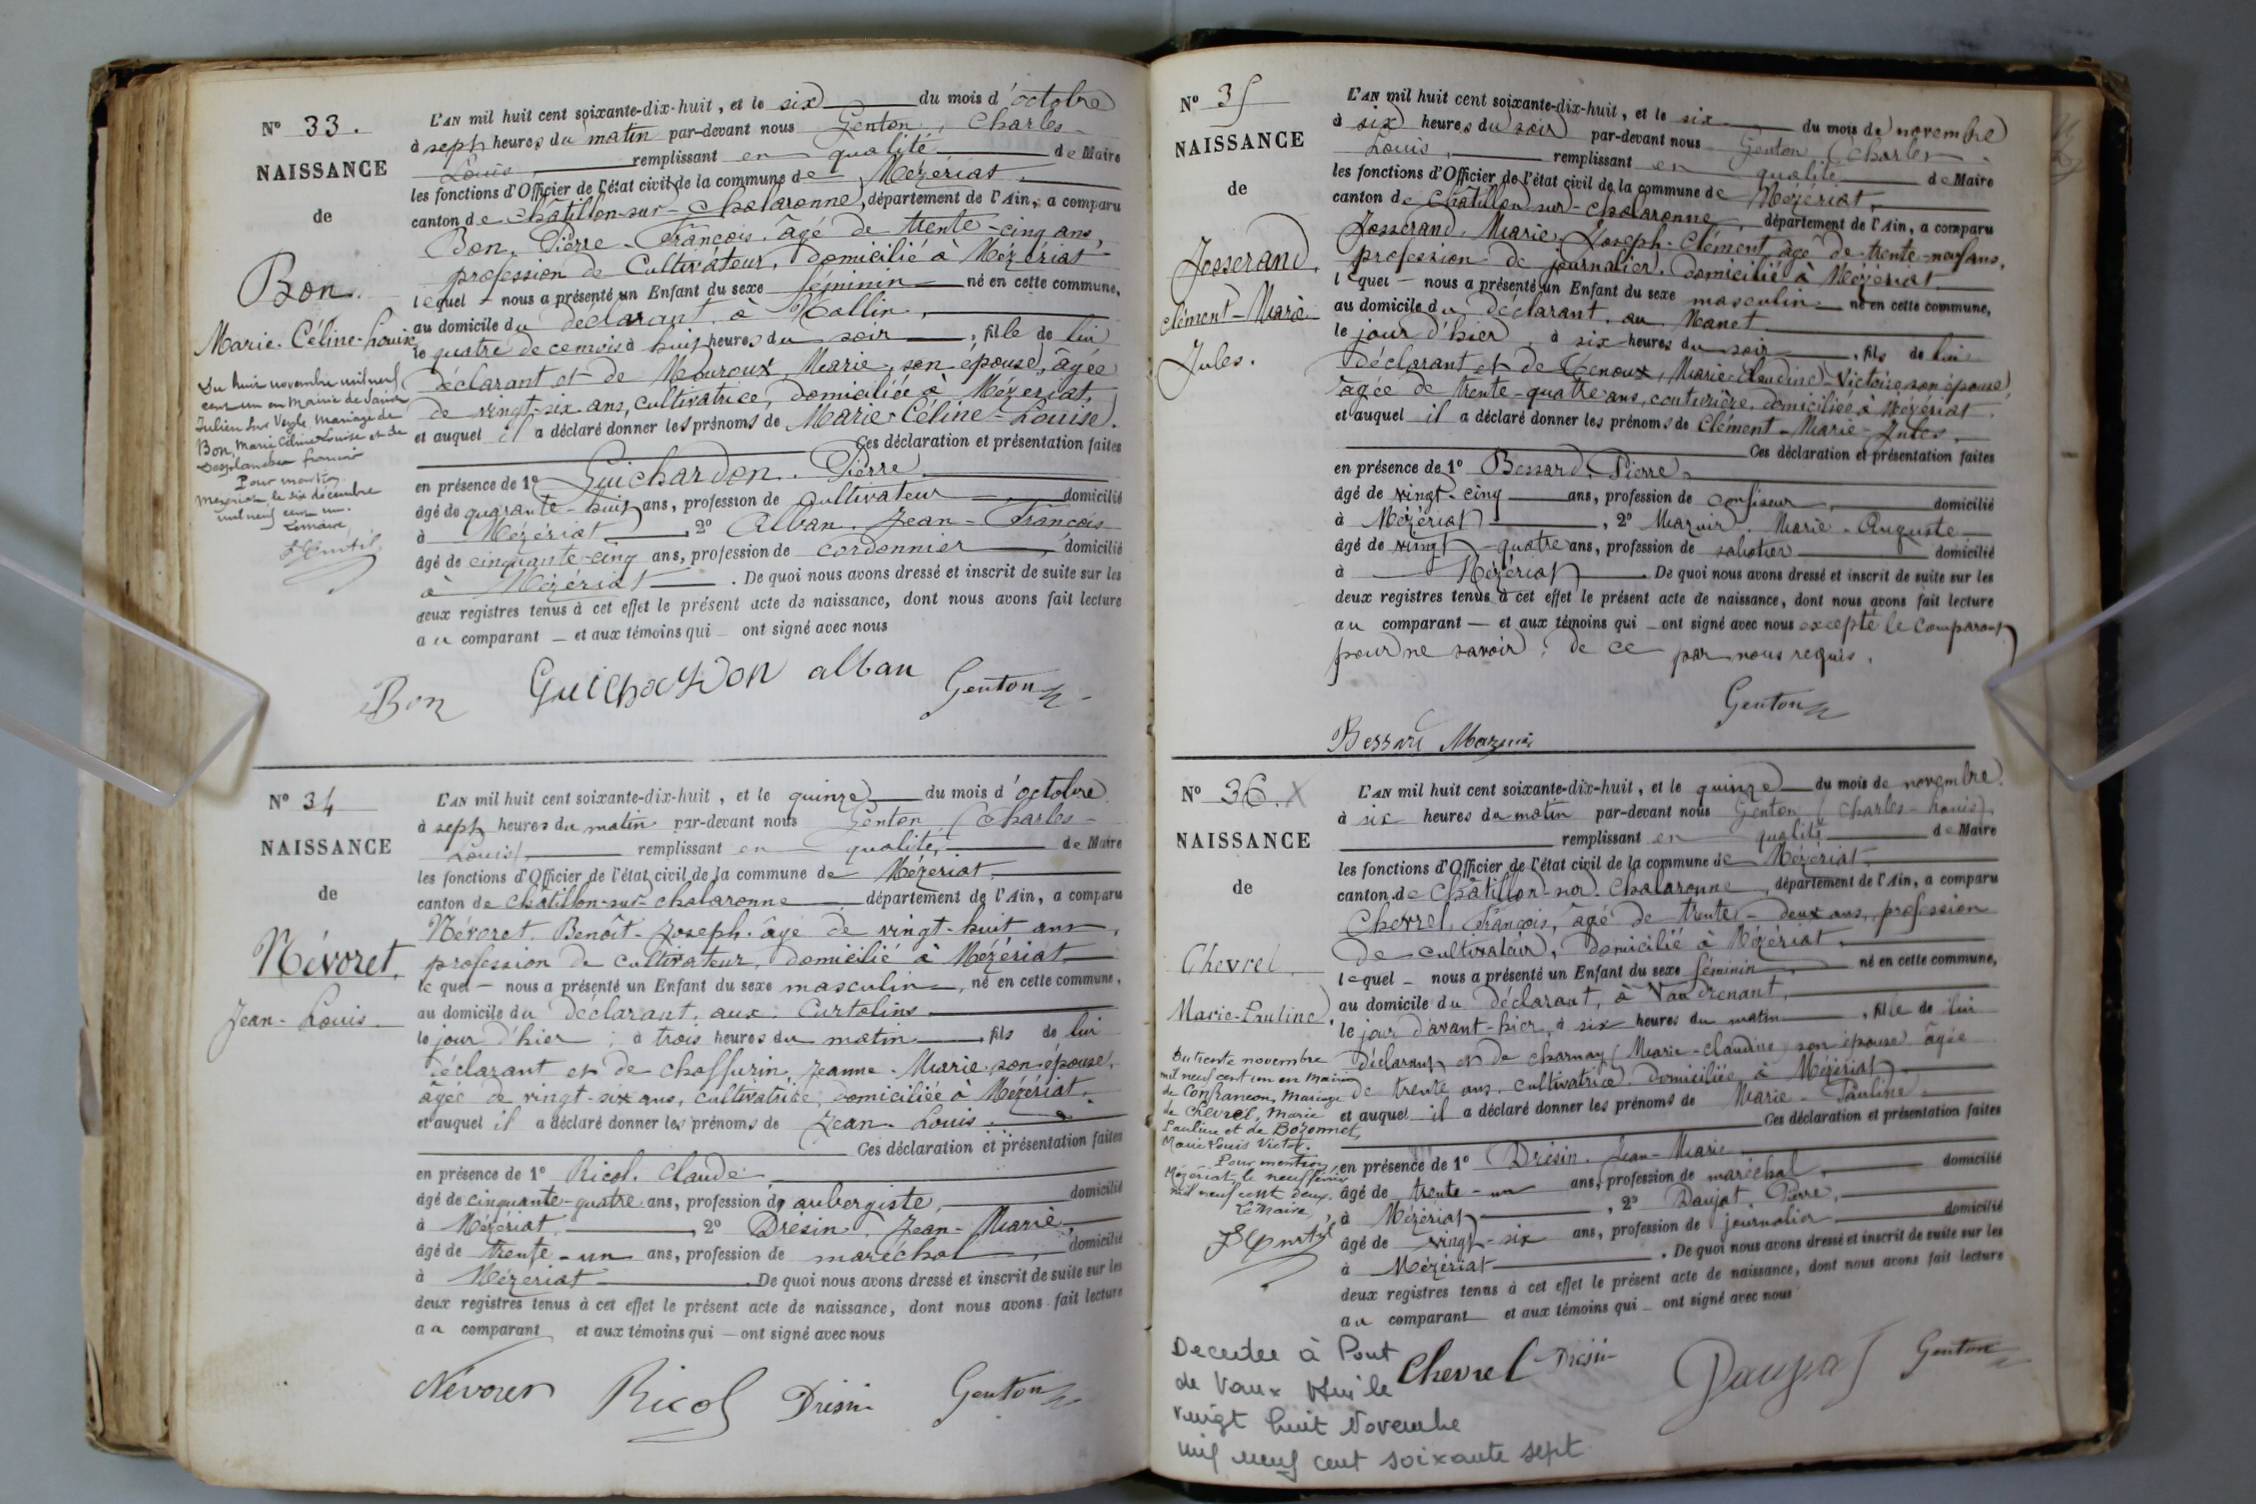 Nº 33.
NAISSANCE
de
Bon.
Marie-Céline-Louise
Du huit novembre mil neuf
cent un en Mairie de Saint
Julien sur Veyle, Mariage de
Bon, Marie Céline Louise et de
Desplanches François
Pour mention
Mézériat le six décembre
mil neuf cent un.
Le maire,
L'AN mil huit cent soixante-dix-huit, et le six du mois d'octobre
à sept heures du matin par-devant nous Genton, Charles-
Louis, remplissant en qualité de Maire
les fonctions d'Officier de l'état civil de la commune de Mézériat,
canton de Châtillon-sur-Chalaronne, département de l'Ain, a comparu
Bon, Pierre-François, âgé de trente-cinq ans,
profession de Cultivateur, domicilié à Mézériat
lequel - nous a présenté un Enfant du sexe féminin né en cette commune,
au domicile du déclarant, à Mollin,
le quatre de ce mois à huit heures du soir, fille de lui
déclarant et de Mouroux, Marie, son épouse, âgée
de vingt-six ans, cultivatrice, domiciliée à Mézériat,
et auquel il a déclaré donner les prénoms de Marie-Céline-Louise.
Ces déclaration et présentation faites
en présence de 1º Guichardon, Pierre
âgé de quarante-huit ans, profession de cultivateur, domicilié
à Mézériat, 2º Alban, Jean-François
âgé de cinquante-cinq ans, profession de cordonnier, domicilié
à Mézériat. De quoi nous avons dressé et inscrit de suite sur les
deux registres tenus à cet effet le présent acte de naissance, dont nous avons fait lecture
au comparant - et aux témoins qui - ont signé avec nous
Bon Guichardon alban Genton
Nº 34
NAISSANCE
de
Névoret,
Jean-Louis.
L'AN mil huit cent soixante-dix-huit, et le quinze du mois d'octobre
à sept heures du matin par-devant nous Genton (Charles-
Louis) remplissant en qualité, de Maire
les fonctions d'Officier de l'état civil de la commune de Mézériat,
canton de Châtillon-sur-Chalaronne département de l'Ain, a comparu
Névoret, Benoît-Joseph, âgé de vingt-huit ans,
profession de cultivateur, domicilié à Mézériat
lequel - nous a présenté un Enfant du sexe masculin, né en cette commune,
au domicile du déclarant, aux Curtelins
le jour d'hier, à trois heures du matin, fils de lui
déclarant et de Choffurin, Jeanne-Marie son épouse,
âgée de vingt-six ans, cultivatrice, domiciliée à Mézériat,
et auquel il a déclaré donner les prénoms de Jean-Louis.
Ces déclaration et présentation faites
en présence de 1º Ricol, Claude
âgé de cinquante-quatre ans, profession de aubergiste, domicilié
à Mézériat, 2º Drésin, Jean-Marie,
âgé de trente-un ans, profession de maréchal, domicilié
à Mézériat De quoi nous avons dressé et inscrit de suite sur les
deux registres tenus à cet effet le présent acte de naissance, dont nous avons fait lecture
au comparant et aux témoins qui - ont signé avec nous
Névoret Ricol Drésin Genton
Nº 35
NAISSANCE
de
Josserand,
Clément-Marie-
Jules.
L'AN mil huit cent soixante-dix-huit, et le six du mois de novembre
à six heures du soir par-devant nous Genton (Charles
Louis, remplissant en qualité de Maire
les fonctions d'Officier de l'état civil de la commune de Mézériat,
canton de Châtillon-sur-Chalaronne, département de l'Ain, a comparu
Josserand, Marie-Joseph-Clément, âgé de trente-neuf ans,
profession de journalier, domicilié à Mézériat
lequel - nous a présenté un Enfant du sexe masculin né en cette commune,
au domicile du déclarant, au Manet
le jour d'hier, à six heures du soir, fils de lui
déclarant et de Tenoux, Marie-Claudine-Victoire son épouse,
âgée de trente-quatre ans, couturière, domiciliée à Mézériat,
et auquel il a déclaré donner les prénoms de Clément-Marie-Jules.
Ces déclaration et présentation faites
en présence de 1º Bessard, Pierre
âgé de vingt-cinq ans, profession de confiseur, domicilié
à Mézériat, 2º Mazuir, Marie-Auguste
âgé de vingt-quatre ans, profession de sabotier domicilié
à Mézériat De quoi nous avons dressé et inscrit de suite sur les
deux registres tenus à cet effet le présent acte de naissance, dont nous avons fait lecture
au comparant - et aux témoins qui - ont signé avec nous excepté le comparant
pour ne savoir, de ce par nous requis.
Genton
Bessard Mazuir
Nº 36. X
NAISSANCE
de
Chevrel,
Marie-Pauline,
Du trente novembre
mil neuf cent un en Mairie
de Confrançon, Mariage
de Chevrel, Marie
Pauline et de Bozonnet,
Marie Louis Victor.
Pour mention
Mézériat, le neuf février
mil neuf cent deux.
Le Maire,
L'AN mil huit cent soixante-dix-huit, et le quinze du mois de novembre
à six heures du matin par-devant nous Genton (Charles-Louis)
remplissant en qualité de Maire
les fonctions d'Officier de l'état civil de la commune de Mézériat,
canton de Châtillon-sur-Chalaronne, département de l'Ain, a comparu
Chevrel, François, âgé de trente-deux ans, profession
de cultivateur, domicilié à Mézériat,
lequel - nous a présenté un Enfant du sexe féminin né en cette commune,
au domicile du déclarant, à Vaudrenant,
le jour d'avant-hier, à six heures du matin, fille de lui
déclarant et de Charnay (Marie-Claudine) son épouse âgée
de trente ans, cultivatrice, domiciliée à Mézériat
et auquel il a déclaré donner les prénoms de Marie-Pauline
Ces déclaration et présentation faites
en présence de 1º Drésin, Jean-Marie
âgé de trente-un ans, profession de maréchal, domicilié
à Mézériat, 2º Daujat, Pierre,
âgé de vingt-six ans, profession de journalier domicilié
à Mézériat. De quoi nous avons dressé et inscrit de suite sur les
deux registres tenus à cet effet le présent acte de naissance, dont nous avons fait lecture
au comparant et aux témoins qui - ont signé avec nous
Chevrel Drésin Daujat Genton
Decedee à Pont
de Vaux le
vingt huit Novembre
mil neuf cent soixante sept